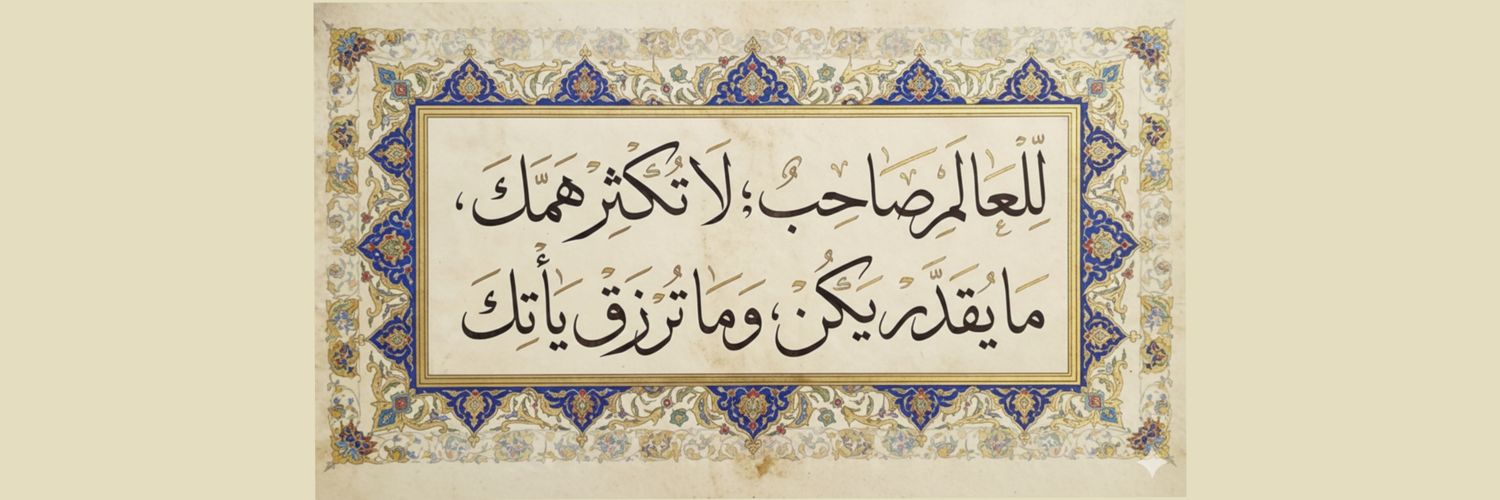 لِلْعَالَمِ صَاحِبٌ؛ لَا تُكْثِرْ هَمَّكَ،
مَا يُقَدَّرْ يَكُنْ، وَمَا تُرْزَقْ يَأْتِكَ